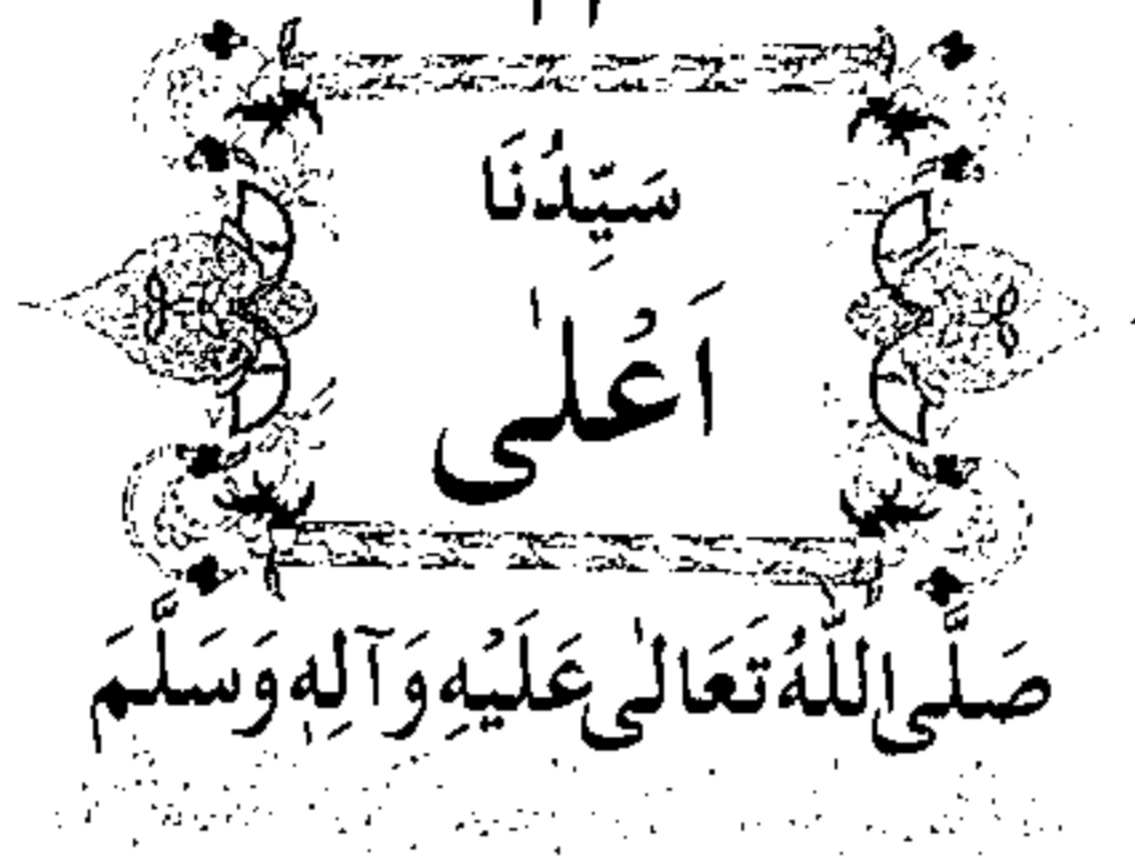 سَيِّدُنَا
اَعْلٰى
صَلَّى اللّٰهُ تَعَالٰى عَلَيْهِ وَآلِهٖ وَسَلَّمَ